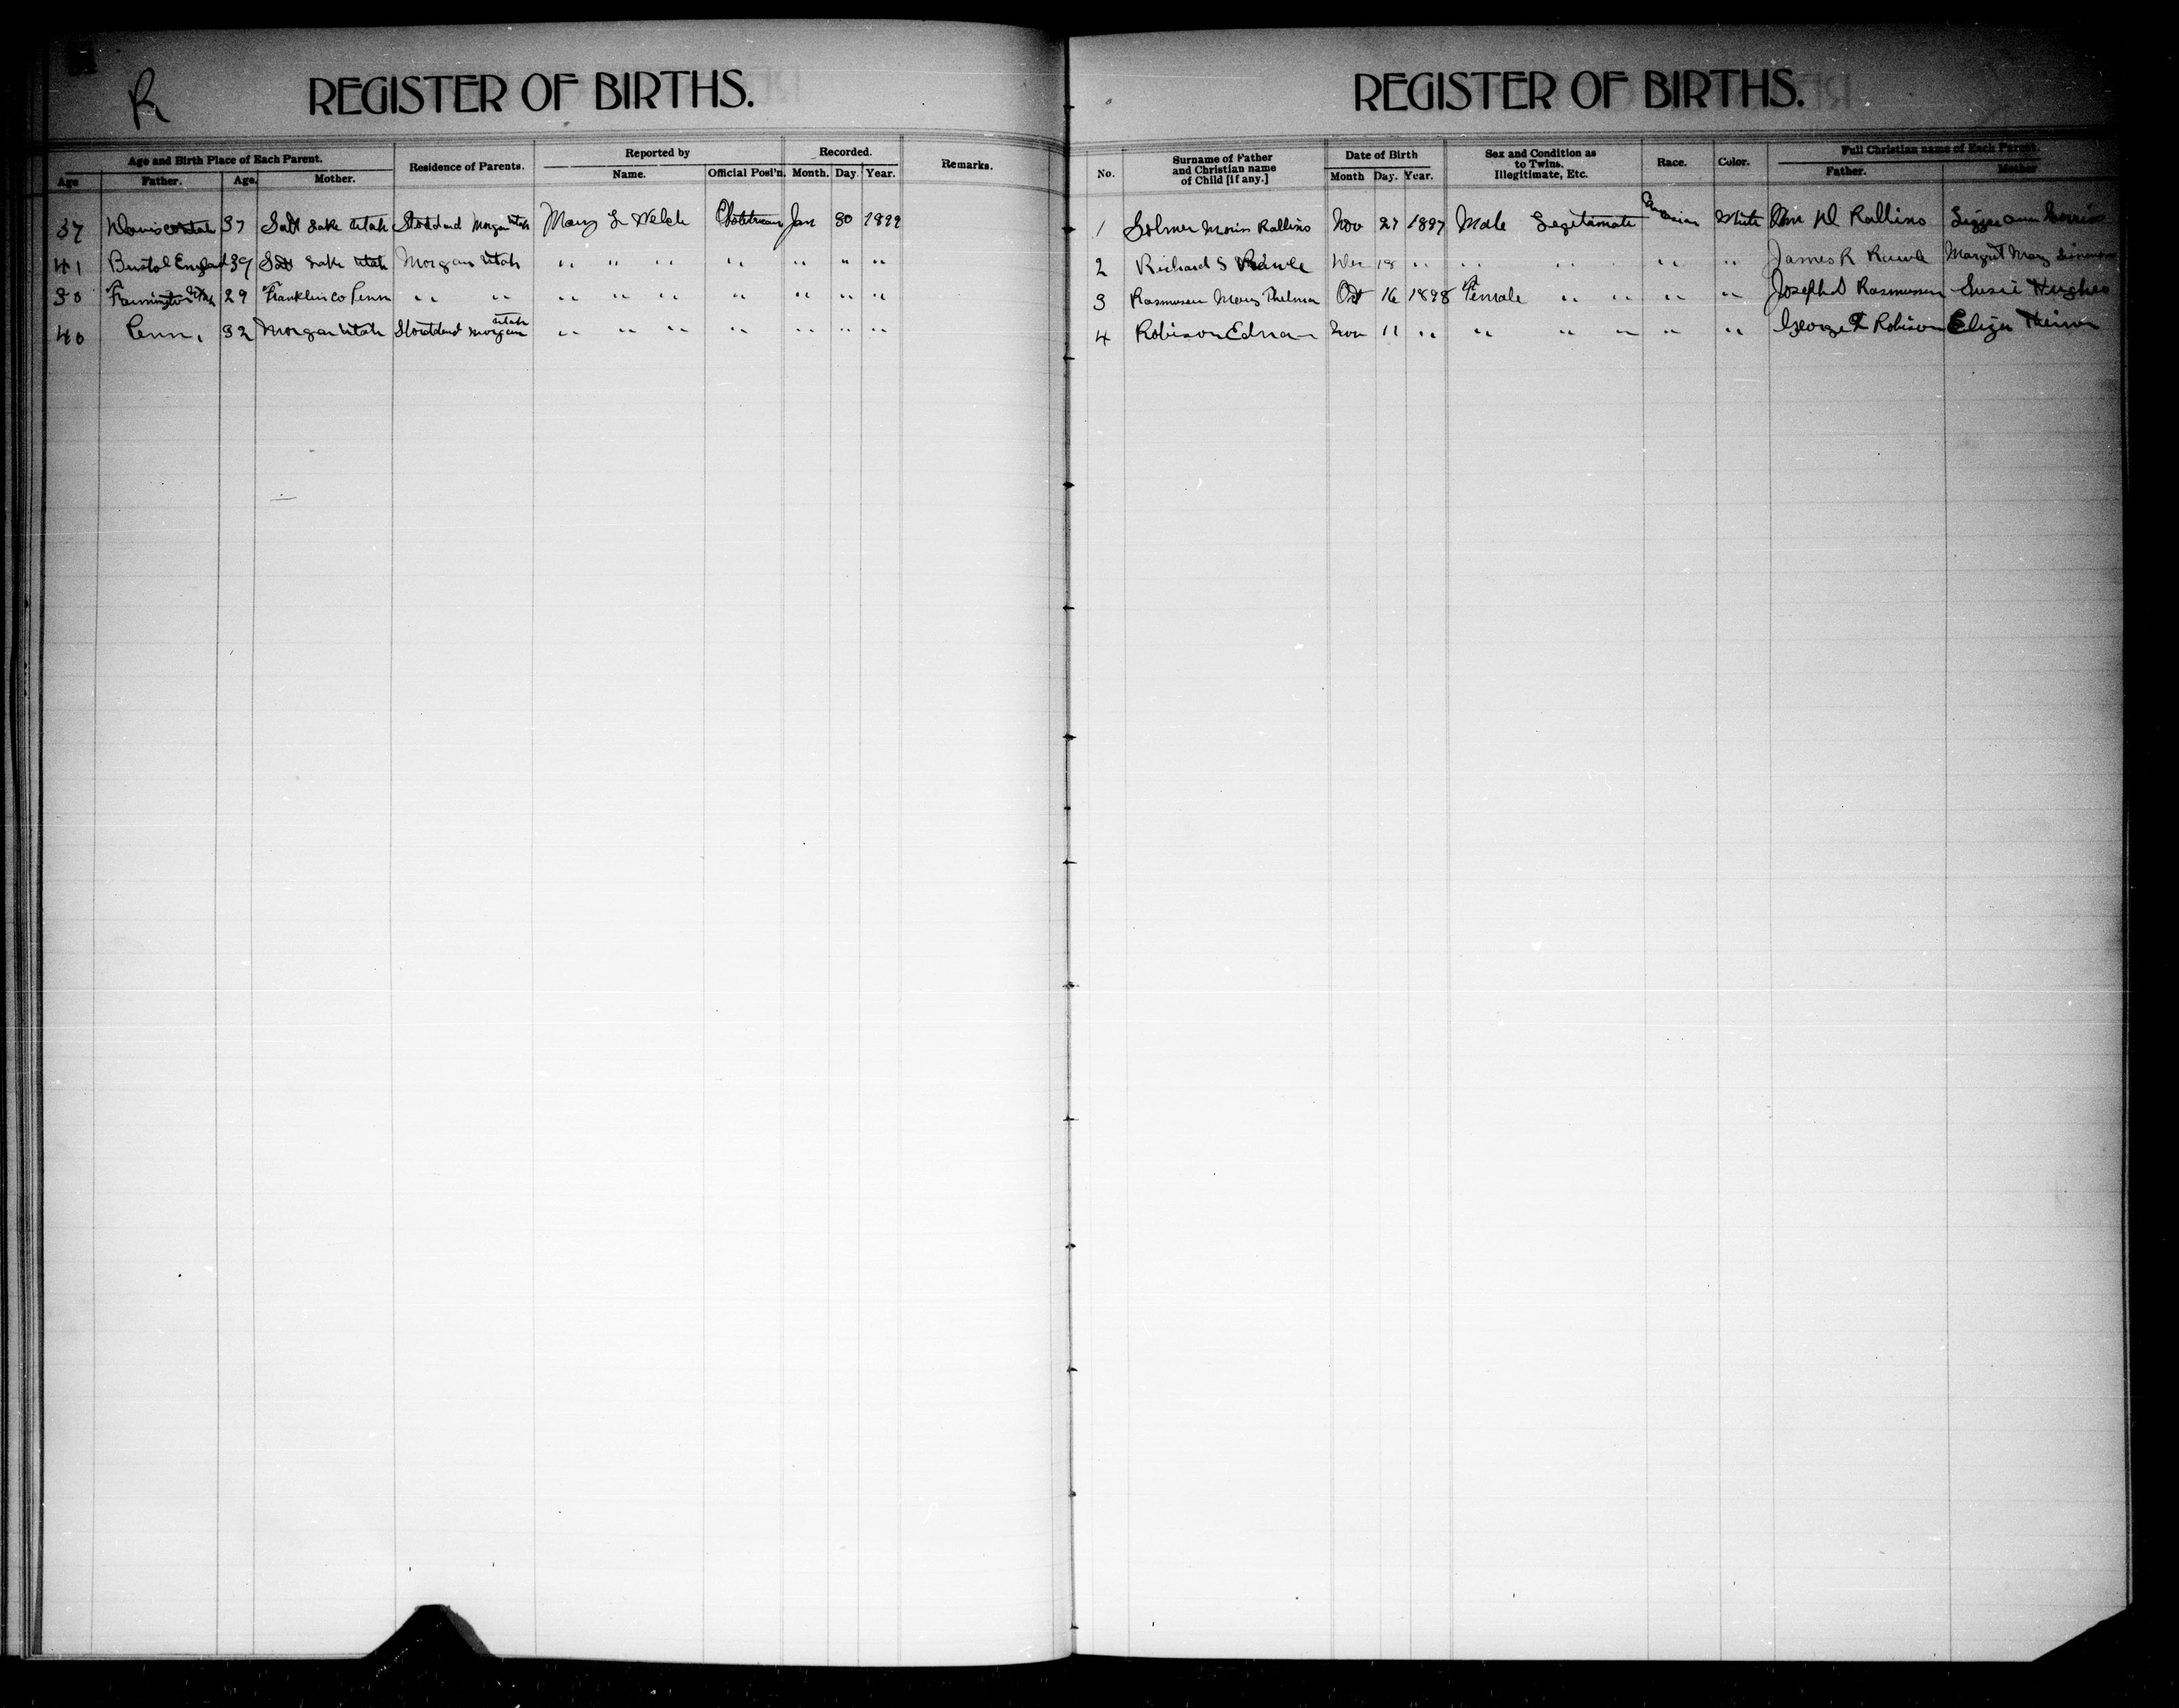 R
REGISTER OF BIRTHS.
Age and Birth Place of Each Parent. Residence of Parents. Reported by Recorded. Remarks.
Age Father. Age. Mother. Name. Official Posi'n. Month. Day. Year.
37 Davis co Utah 37 Salt Lake Utah Stoddard Morgan Utah Mary L Welch Obstetrican Jan 30 1899
41 Bristol England 39 Salt Lake Utah Morgan Utah " " " " " " "
30 Farmington Utah 29 Franklin Co Penn " " " " " " " " "
40 Penn. 32 Morgan Utah Stoddard Morgan Utah " " " " " " "
REGISTER OF BIRTHS.
No. Surname of Father and Christian name of Child [if any.] Date of Birth Sex and Condition as to Twins, Illegitimate, Etc. Race. Color. Full Christian name of Each Parent.
Month Day. Year. Father. Mother
1 Morris Rollins Nov 27 1897 Male Legitamate Caucasian White Wm D Rollins Lizzie Ann
2 Richard S Dec 18 " " " " " James R Margret Mary
3 Rasmusen Mary Thelma Oct 16 1898 Female " " " " Joseph S Rasmussen Susie Hughes
4 Robison Edna Nov 11 " " " " " " George Robison Eliza